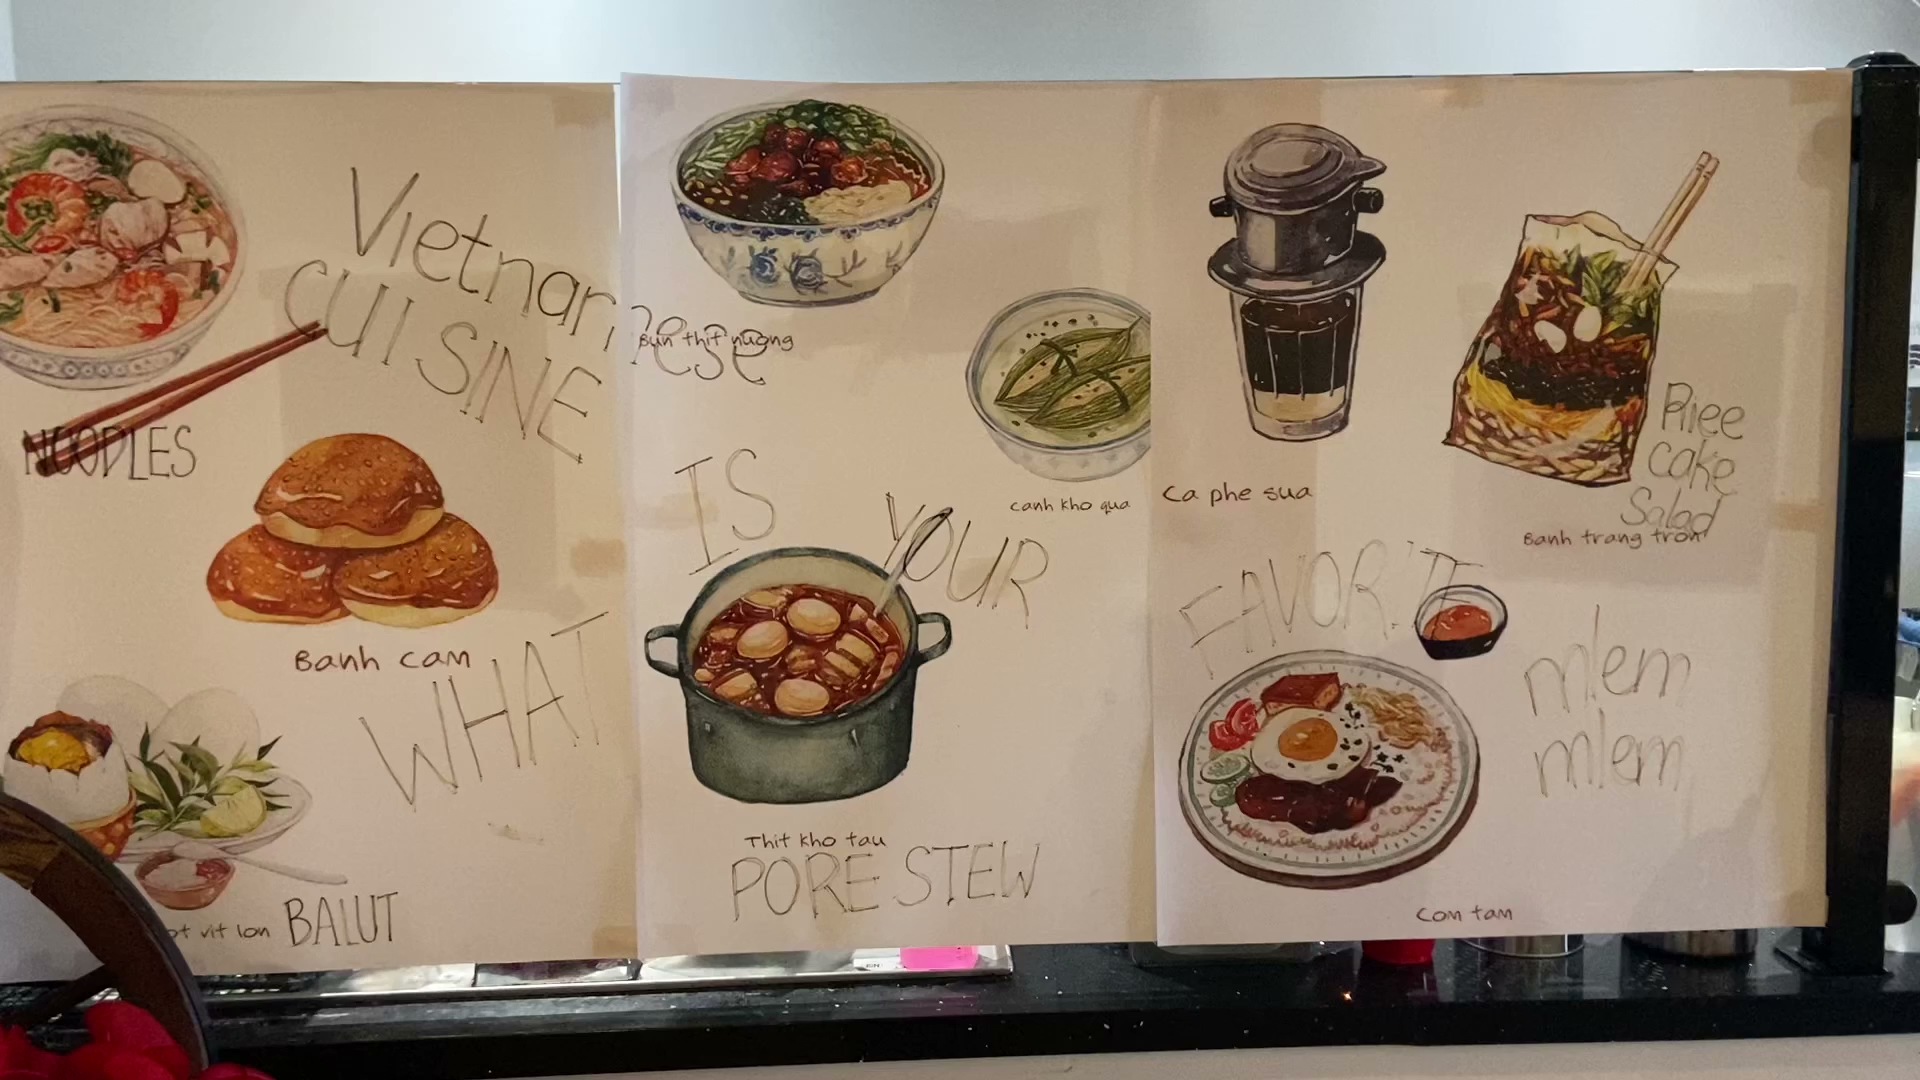 Vietnamese
CUISINE
NOODLES
Banh cam
WHAT
ot vit lon BALUT
Bun thit nuong
canh kho qua
IS YOUR
Thit kho tau
PORE STEW
Ca phe sua
Riee
cake
Salad
Banh trang tron
FAVORITE
mlem
mlem
Com tam